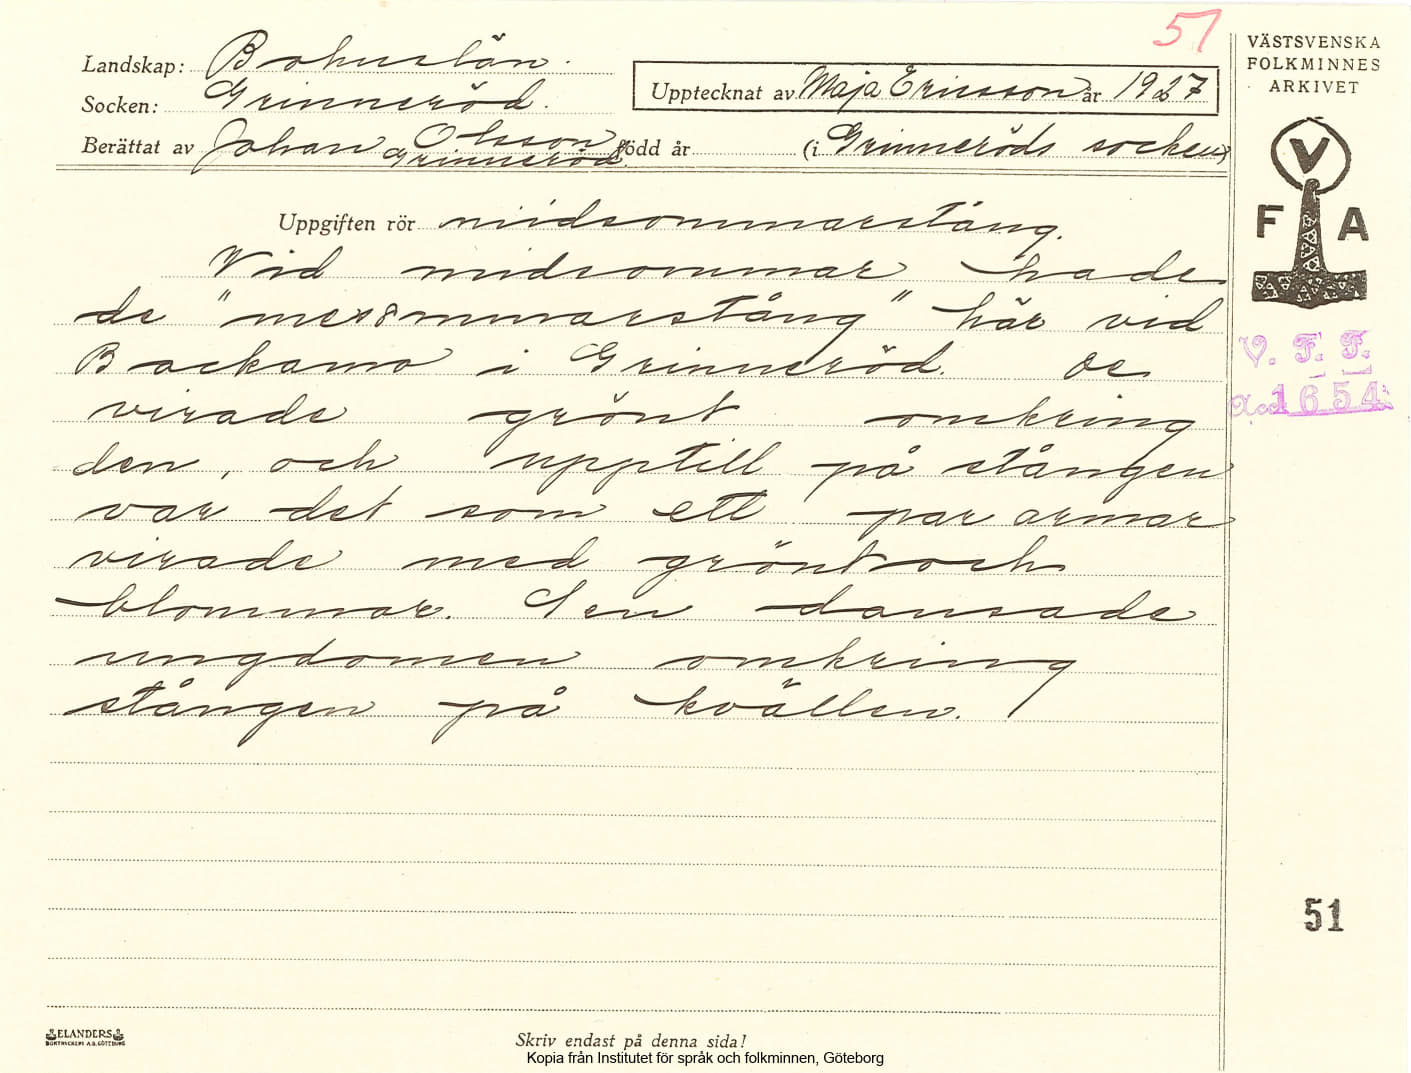 51
Landskap: Bohuslän.
Socken: Grinneröd.
Upptecknat av Maja Ericsson år 1927
Berättat av Johan Olsson född år (i Grinneröds socken)
Grinneröd.
VÄSTSVENSKA
FOLKMINNES
ARKIVET
V
F A
V. F. F.
Acc. 1654
Uppgiften rör midsommarstång.
Vid midsommar hade
de "messommarstång" här vid
Backamo i Grinneröd. De
virade grönt omkring
den, och upptill på stången
var det som ett par armar
virade med grönt och
blommor. Sen dansade
ungdomen omkring
stången på kvällen.
51
ELANDERS
BOKTRYCKERI A.B. GÖTEBORG
Skriv endast på denna sida!
Kopia från Institutet för språk och folkminnen, Göteborg